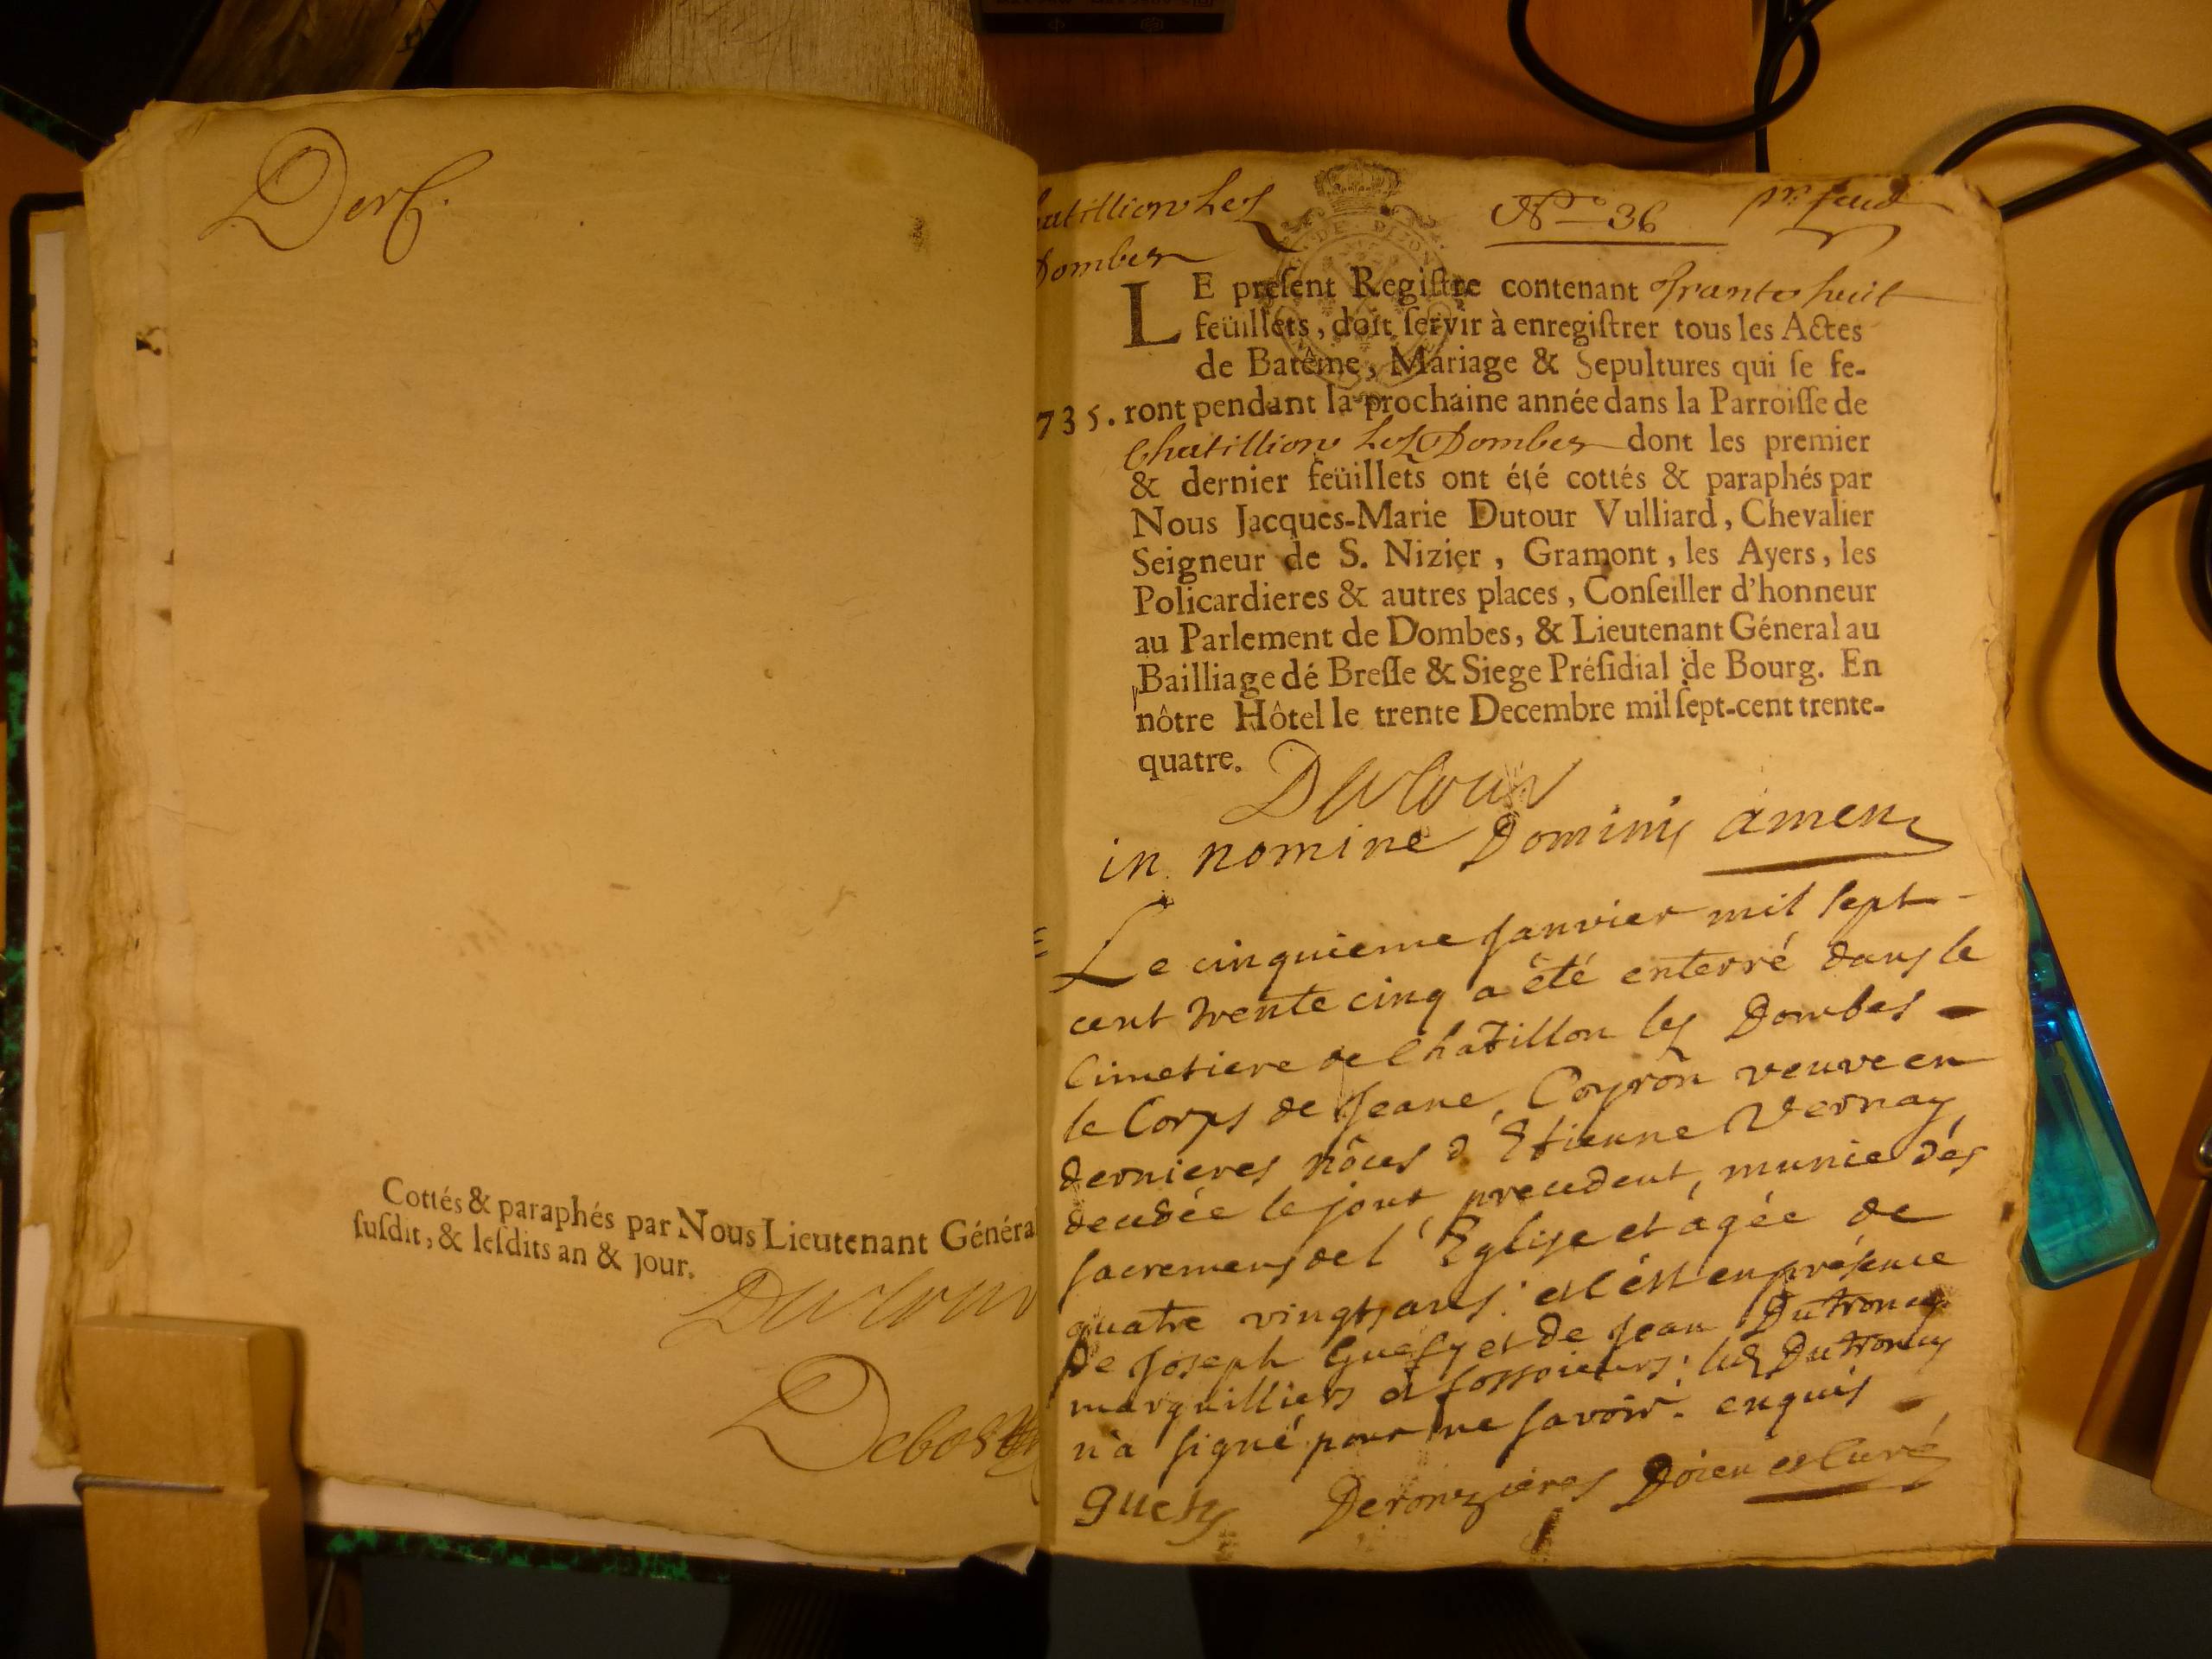 Derf.
Cottés & paraphés par Nous Lieutenant Généra
ſuſdit, & leſdits an & jour.
Dutour
hatillion Les
Dombes
N° 36
pr. feuil
DE DIJON
LE preſent Regiſtre contenant trante huit
feüillets, doit ſervir à enregiſtrer tous les Actes
de Batême, Mariage & Sepultures qui ſe fe-
735. ront pendant la prochaine année dans la Parroiſſe de
Chatillion Les Dombes dont les premier
& dernier feüillets ont été cottés & paraphés par
Nous Jacques-Marie Dutour Vulliard, Chevalier
Seigneur de S. Nizier, Gramont, les Ayers, les
Policardieres & autres places, Conſeiller d'honneur
au Parlement de Dombes, & Lieutenant Géneral au
Bailliage dé Breſſe & Siege Préſidial de Bourg. En
nôtre Hôtel le trente Decembre mil ſept-cent trente-
quatre.
Dutour
in nomine Domini amen
Le cinquieme janvier mil sept
cent trente cinq a été enterré dans le
Cimetiere de Chatillon les Dombes
le Corps de Jeane Coyron veuve en
dernieres nôces d'Etienne Vernay
decedée le jour precedent, munie dés
sacremens de l'Eglise et agée de
quatre vingts ans. et c'est en présence
De Joseph Guesy et de Jean Dutroncy
marguilliers et fossoieurs. led Dutroncy
n'a signé pour ne savoir. enquis
Guesy Deronzieres Doien et Curé